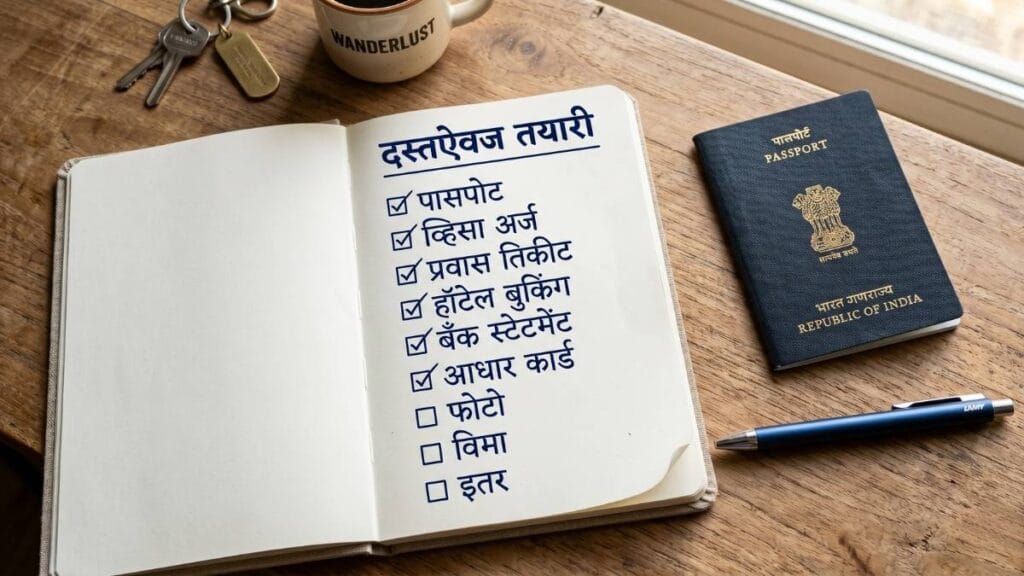 WANDERLUST
दस्तऐवज तयारी
पासपोट
व्हिसा अर्ज
प्रवास तिकीट
हॉटेल बुकिंग
बँक स्टेटमेंट
आधार कार्ड
फोटो
विमा
इतर
पासपोर्ट
PASSPORT
भारत गणराज्य
REPUBLIC OF INDIA
LAMY